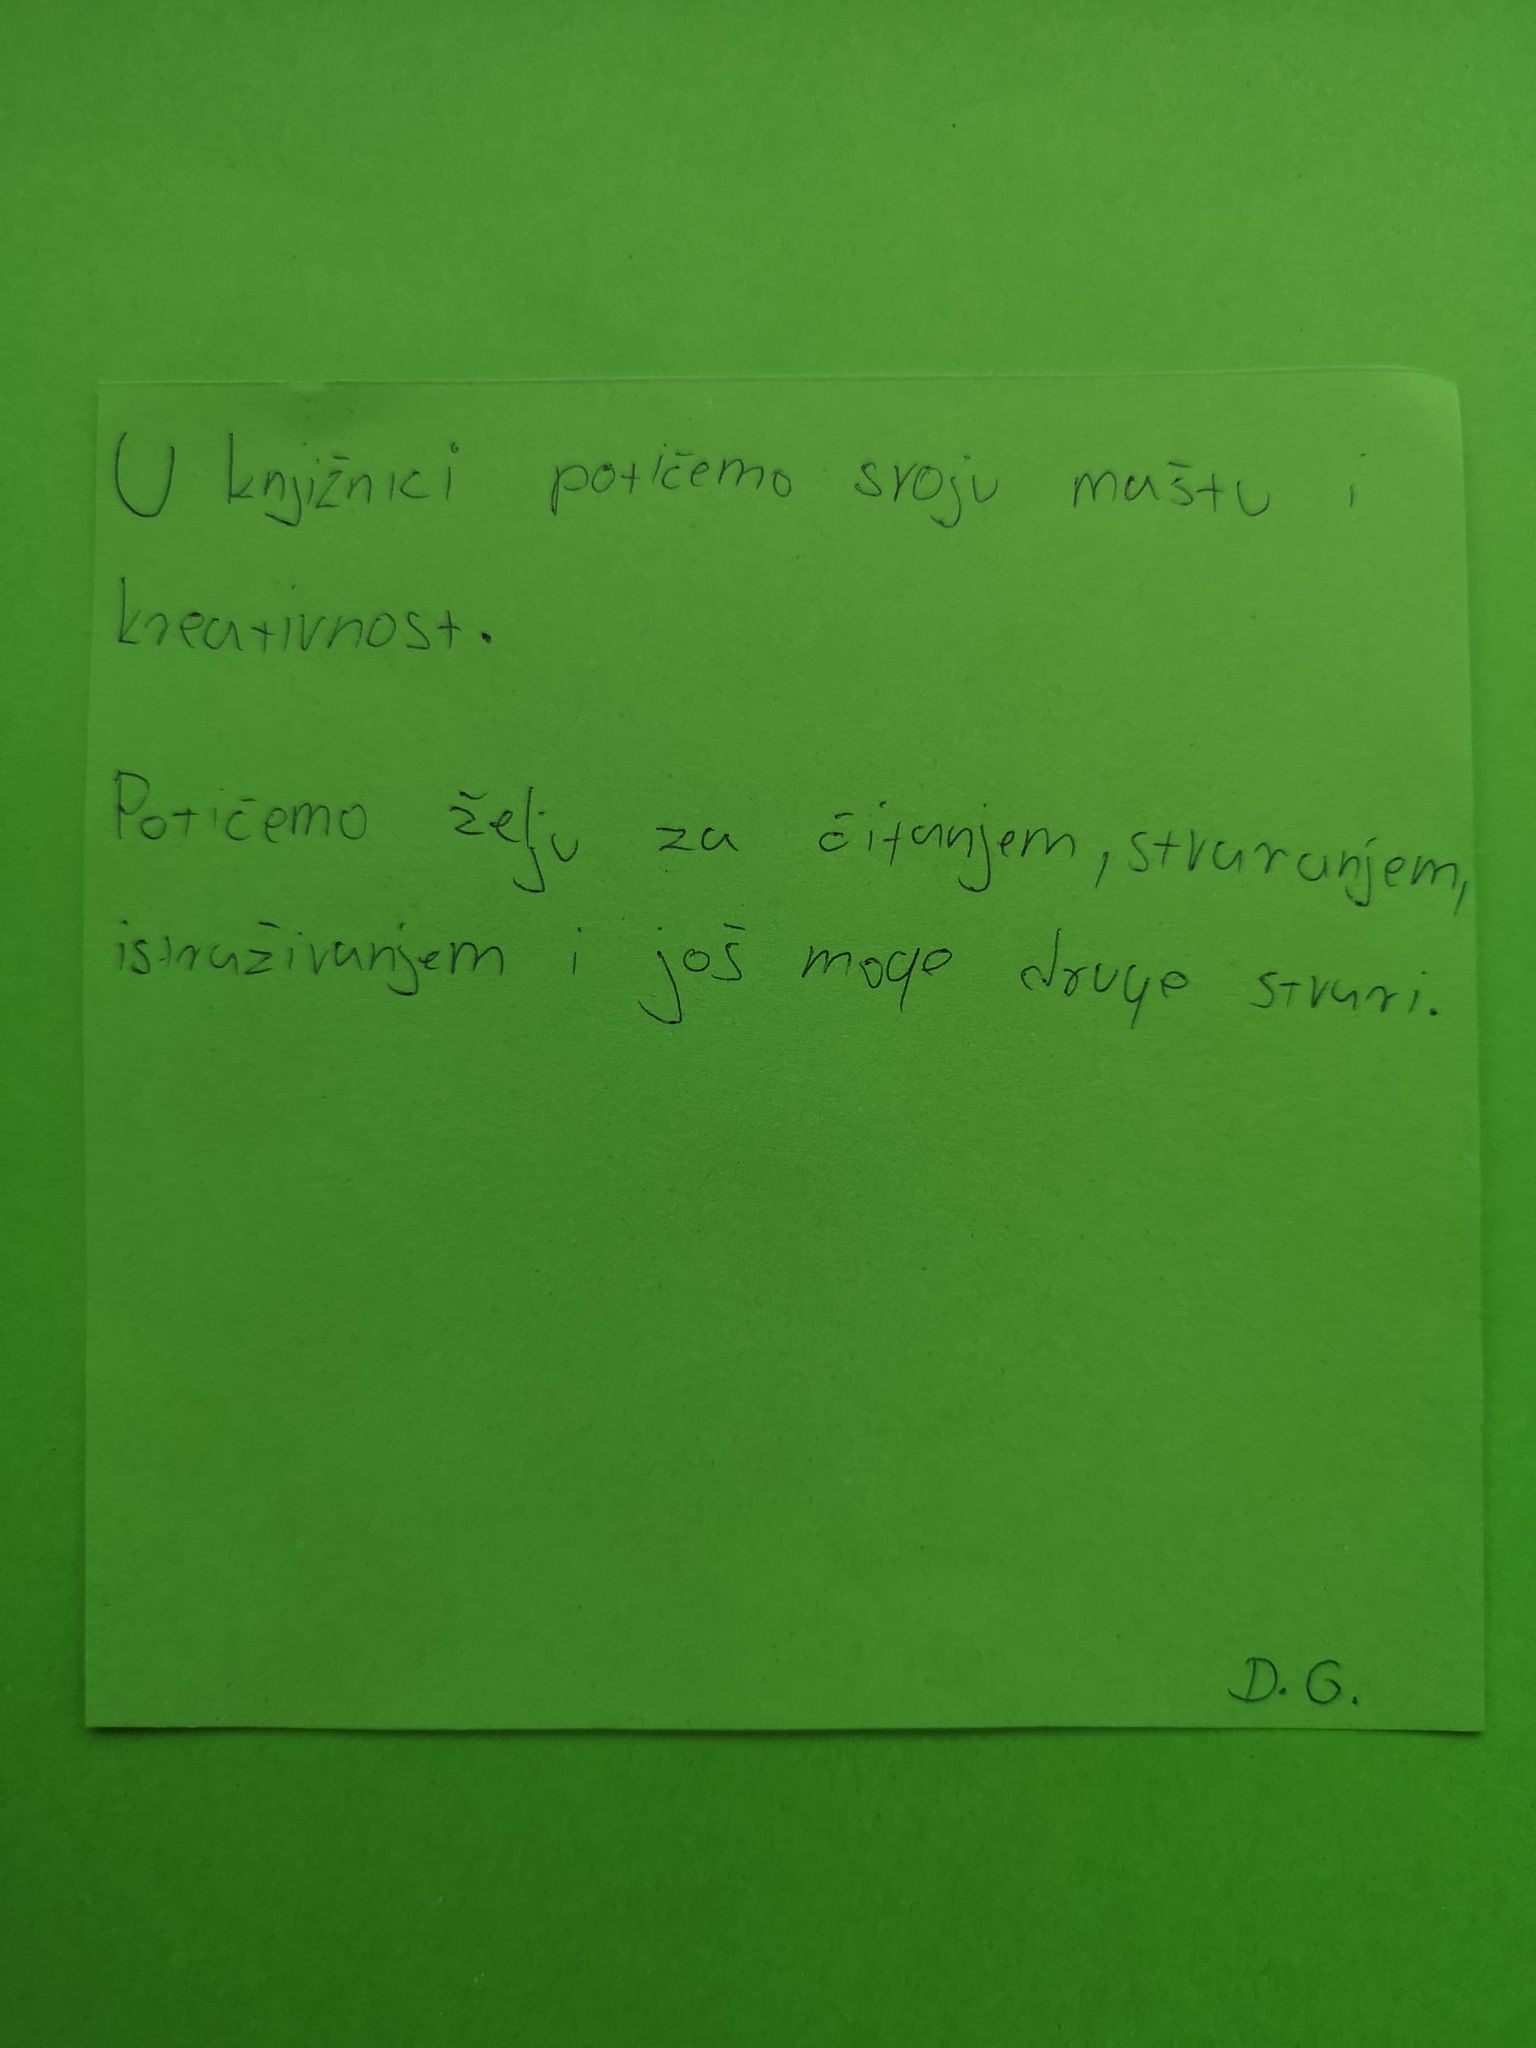 U knjižnici potičemo svoju maštu i
kreativnost.
Potičemo želju za čitanjem, stvaranjem,
istraživanjem i još moge druge stvari.
D. G.